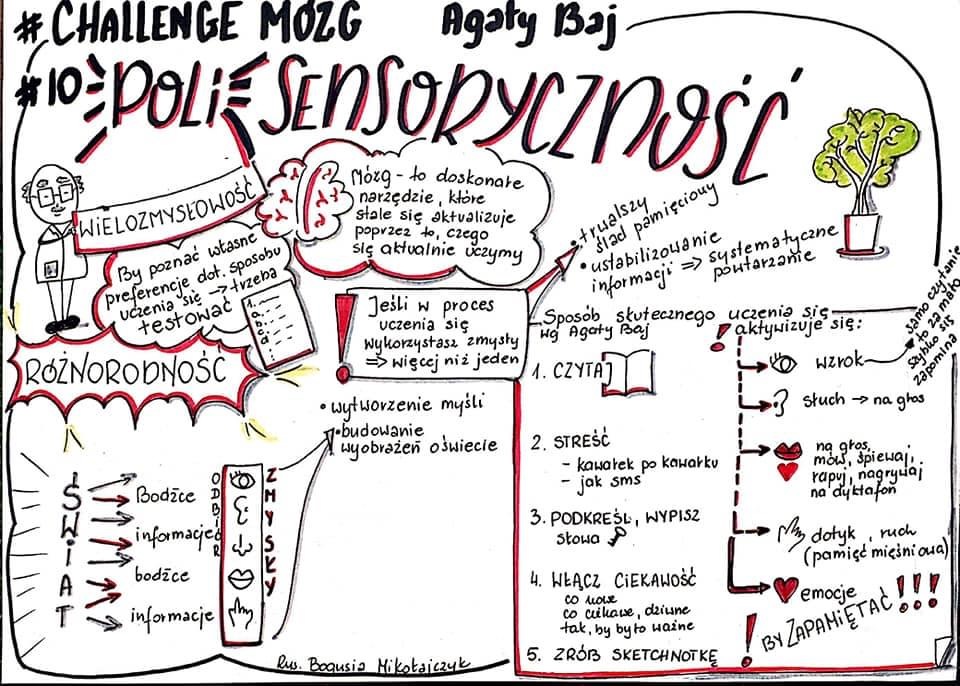 #CHALLENGE MÓZG
Agaty Baj
#10 POLISENSORYCZNOŚĆ
WIELOZMYSŁOWOŚĆ
By poznać własne
preferencje dot. sposobu
uczenia się → trzeba
testować
1.
a.
b.
c.
d.
Mózg - to doskonałe
narzędzie, które
stale się aktualizuje
poprzez to, czego
się aktualnie uczymy
• trwalszy
ślad pamięciowy
• ustabilizowanie
informacji ⇒ systematyczne
powtarzanie
! Jeśli w proces
uczenia się
wykorzystasz zmysły
⇒ więcej niż jeden
RÓŻNORODNOŚĆ
• wytworzenie myśli
• budowanie
wyobrażeń oświecie
ŚWIAT
Bodźce
informacje
bodźce
informacje
ODBIÓR
ZMYSŁY
Sposób skutecznego uczenia się
wg Agaty Baj
1. CZYTAJ
2. STREŚĆ
- kawałek po kawałku
- jak sms
3. PODKREŚL, WYPISZ
słowa
4. WŁĄCZ CIEKAWOŚĆ
co nowe
co ciekawe, dziwne
tak, by było ważne
5. ZRÓB SKETCHNOTKĘ
! aktywizuje się:
wzrok
samo czytanie
to za mało
szybko się
zapomina
słuch → na głos
na głos,
mów, śpiewaj,
rapuj, nagrywaj
na dyktafon
dotyk, ruch
(pamięć mięśniowa)
emocje
! BY ZAPAMIĘTAĆ !!!
Rys. Bogusia Mikołajczyk